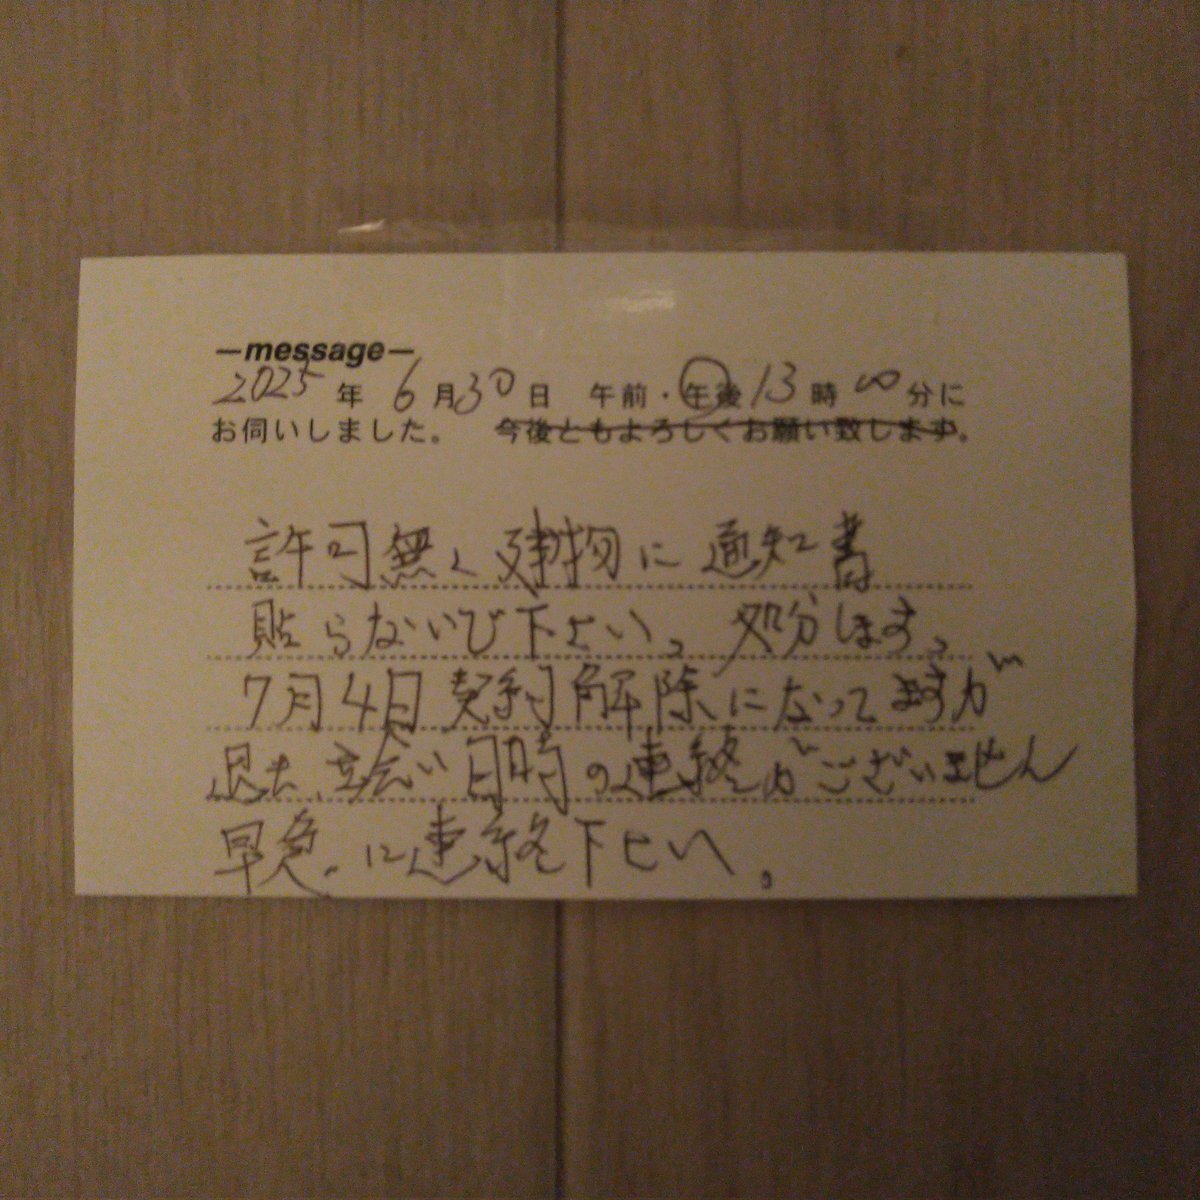 —message—
2025年 6月30日 午前・午後 13時 00分に
お伺いしました。 今後ともよろしくお願い致します。
許可無く建物に通知書
貼らないで下さい。処分します。
7月4日契約解除になってますが
退去、立会い日時の連絡がございません
早急に連絡下さい。